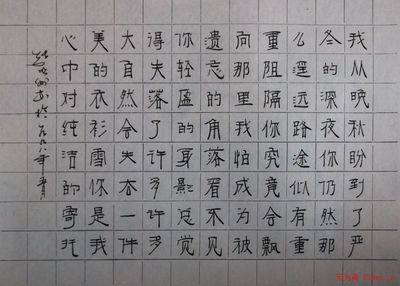 我从晚秋盼到了严
冬的深夜你仍然那
么遥远路途似有重
重阻隔你究竟会飘
向那里我怕成为被
遗忘的角落看不见
你轻盈的身影总觉
得失落了许多许多
大自然会失去一件
美的衣衫雪你是我
心中对纯洁的寄托